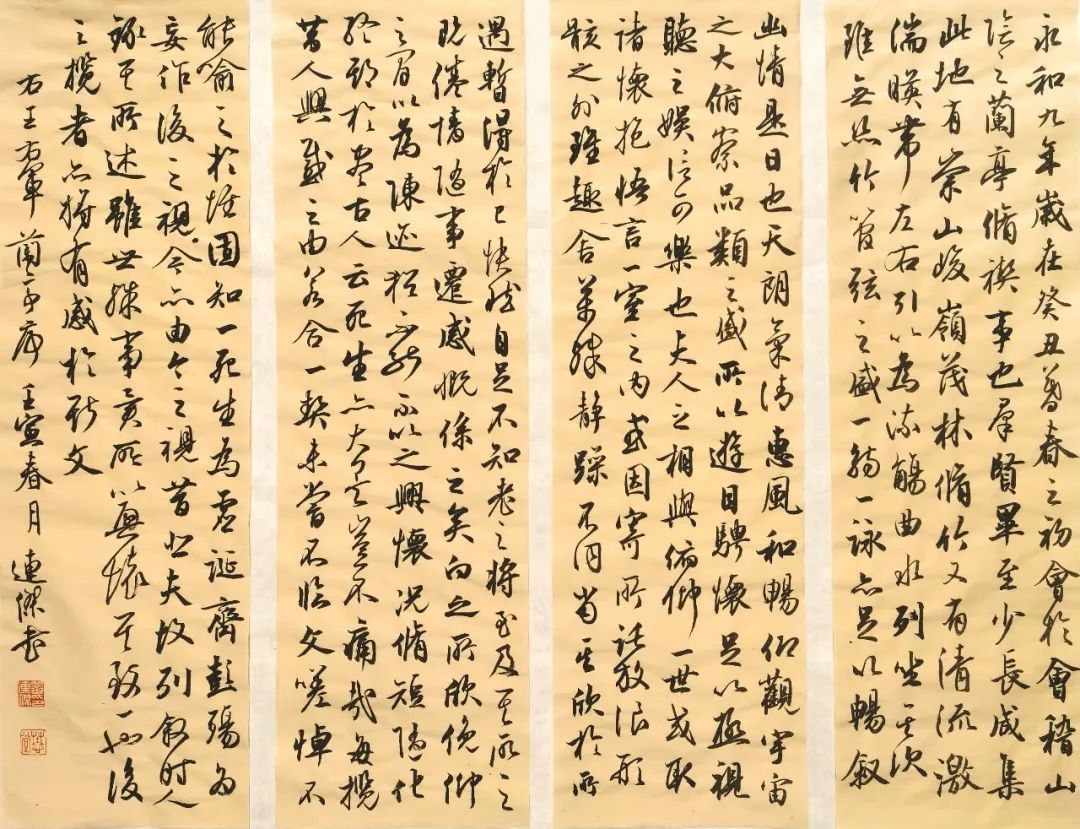 永和九年歲在癸丑暮春之初會於會稽山
陰之蘭亭脩禊事也羣賢畢至少長咸集
此地有崇山峻嶺茂林脩竹又有清流激
湍暎帶左右引以為流觴曲水列坐其次
雖無絲竹管弦之盛一觴一詠亦足以暢敘
幽情是日也天朗氣清惠風和暢仰觀宇宙
之大俯察品類之盛所以遊目騁懷足以極視
聽之娛信可樂也夫人之相與俯仰一世或取
諸懷抱悟言一室之內或因寄所託放浪形
骸之外雖趣舍萬殊靜躁不同當其欣於所
遇暫得於己快然自足不知老之將至及其所之
既倦情隨事遷感慨係之矣向之所欣俛仰
之間以為陳迹猶不能不以之興懷況脩短隨化
終期於盡古人云死生亦大矣豈不痛哉每攬
昔人興感之由若合一契未嘗不臨文嗟悼不
能喻之於懷固知一死生為虛誕齊彭殤為
妄作後之視今亦由今之視昔悲夫故列敘時人
錄其所述雖世殊事異所以興懷其致一也後
之攬者亦將有感於斯文
右王右軍蘭亭序 壬寅春月 連傑書